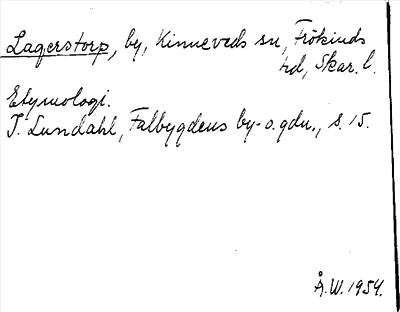 Lagerstorp, by, Kinneveds sn, Frökinds
hd, Skar. l.
Etymologi.
I. Lundahl, Falbygdens by- o. gdn., s. 15.
Å.W. 1954.